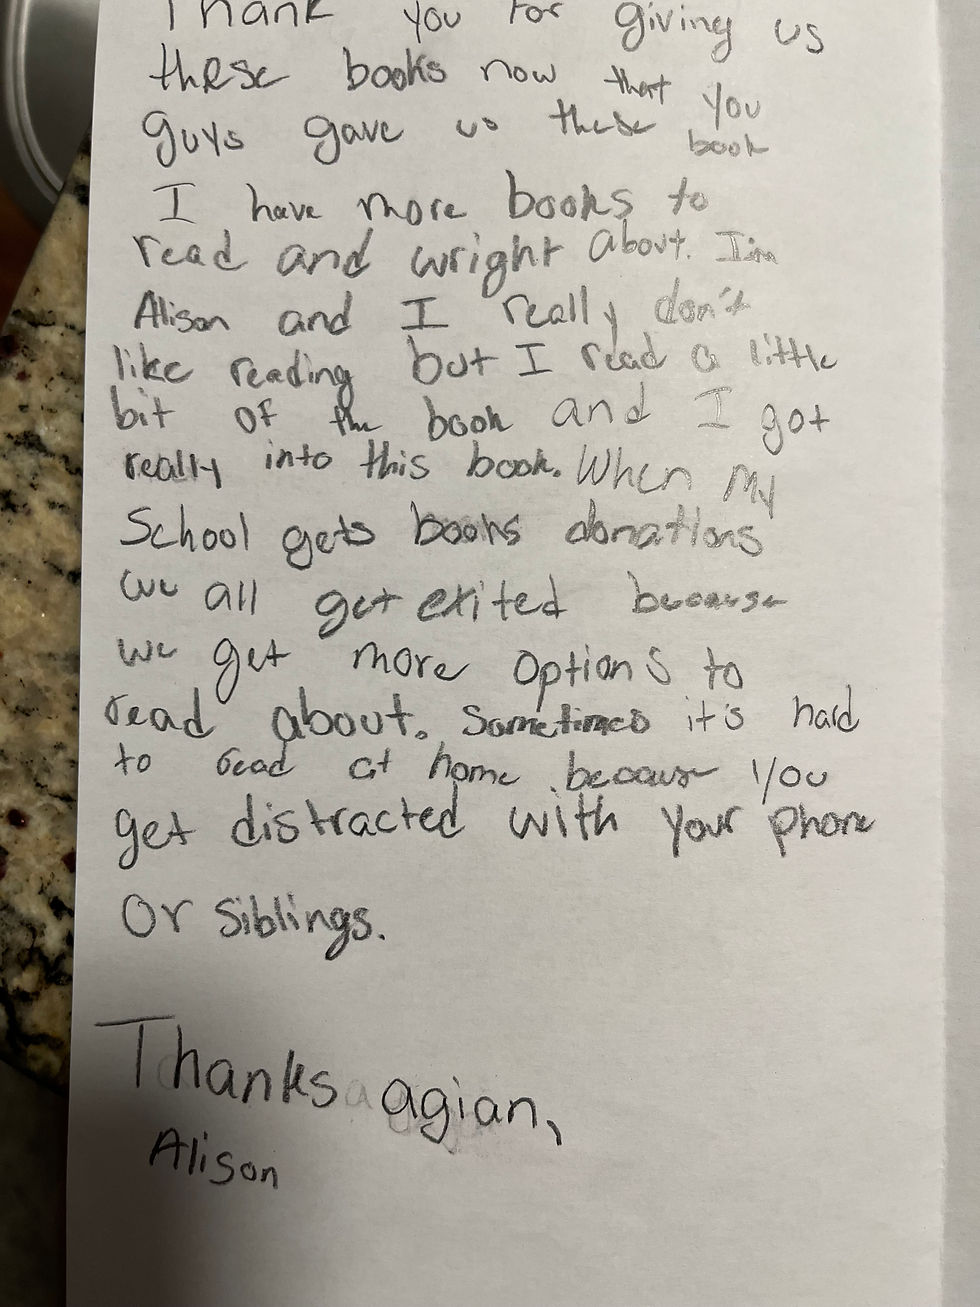 Thank you for giving us
these books now that you
guys gave us these book
I have more books to
read and wright about. I'm
Alison and I really don't
like reading but I read a little
bit of the book and I got
really into this book. When my
School gets books donations
we all get exited because
we get more options to
read about. Sometimes it's hard
to read at home because you
get distracted with your phone
or siblings.
Thanks agian,
Alison